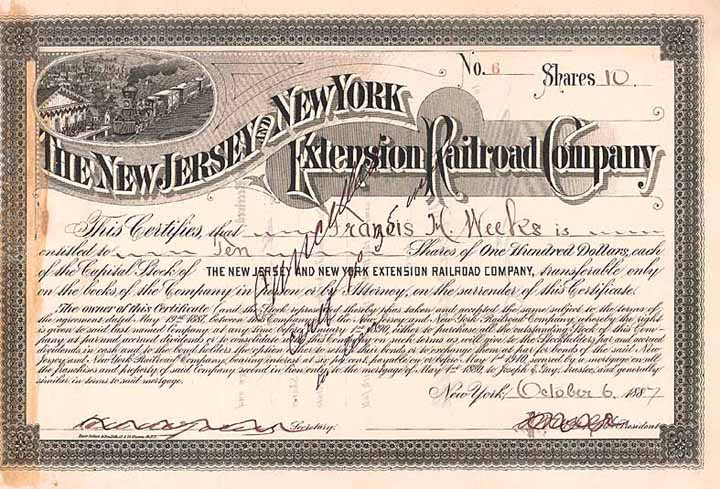 No. 6 Shares 10
THE NEW JERSEY AND NEW YORK
Extension Railroad Company
This Certifies, that Francis H. Weeks is
entitled to Ten Shares of One Hundred Dollars, each
of the Capital Stock of THE NEW JERSEY AND NEW YORK EXTENSION RAILROAD COMPANY, transferable only
on the books of the Company in Person or by Attorney, on the surrender of this Certificate.
The owner of this Certificate (and the Stock represented thereby) has taken and accepted the same subject to the terms of
the agreement dated May 19th 1881, between this Company and the New Jersey and New York Railroad Company, whereby the right
is given to said last named Company at any time before January 1st 1890, either to purchase all the outstanding Stock of this Com-
pany, at par and accrued dividends or to consolidate with this Company on such terms as will give to the Stockholders par and accrued
dividends in cash and to the bond holders the option either to sell their bonds or to exchange them at par for bonds of the said New
Jersey and New York Railroad Company, bearing interest at six per cent, payable on or before May 1st 1910, secured by a mortgage on all
the franchises and property of said Company second in lien only to the mortgage of May 1st 1880, to Joseph S. Gay, trustee, and generally
similar in terms to said mortgage.
New York, October 6, 1887
Secretary. President
Cancelled